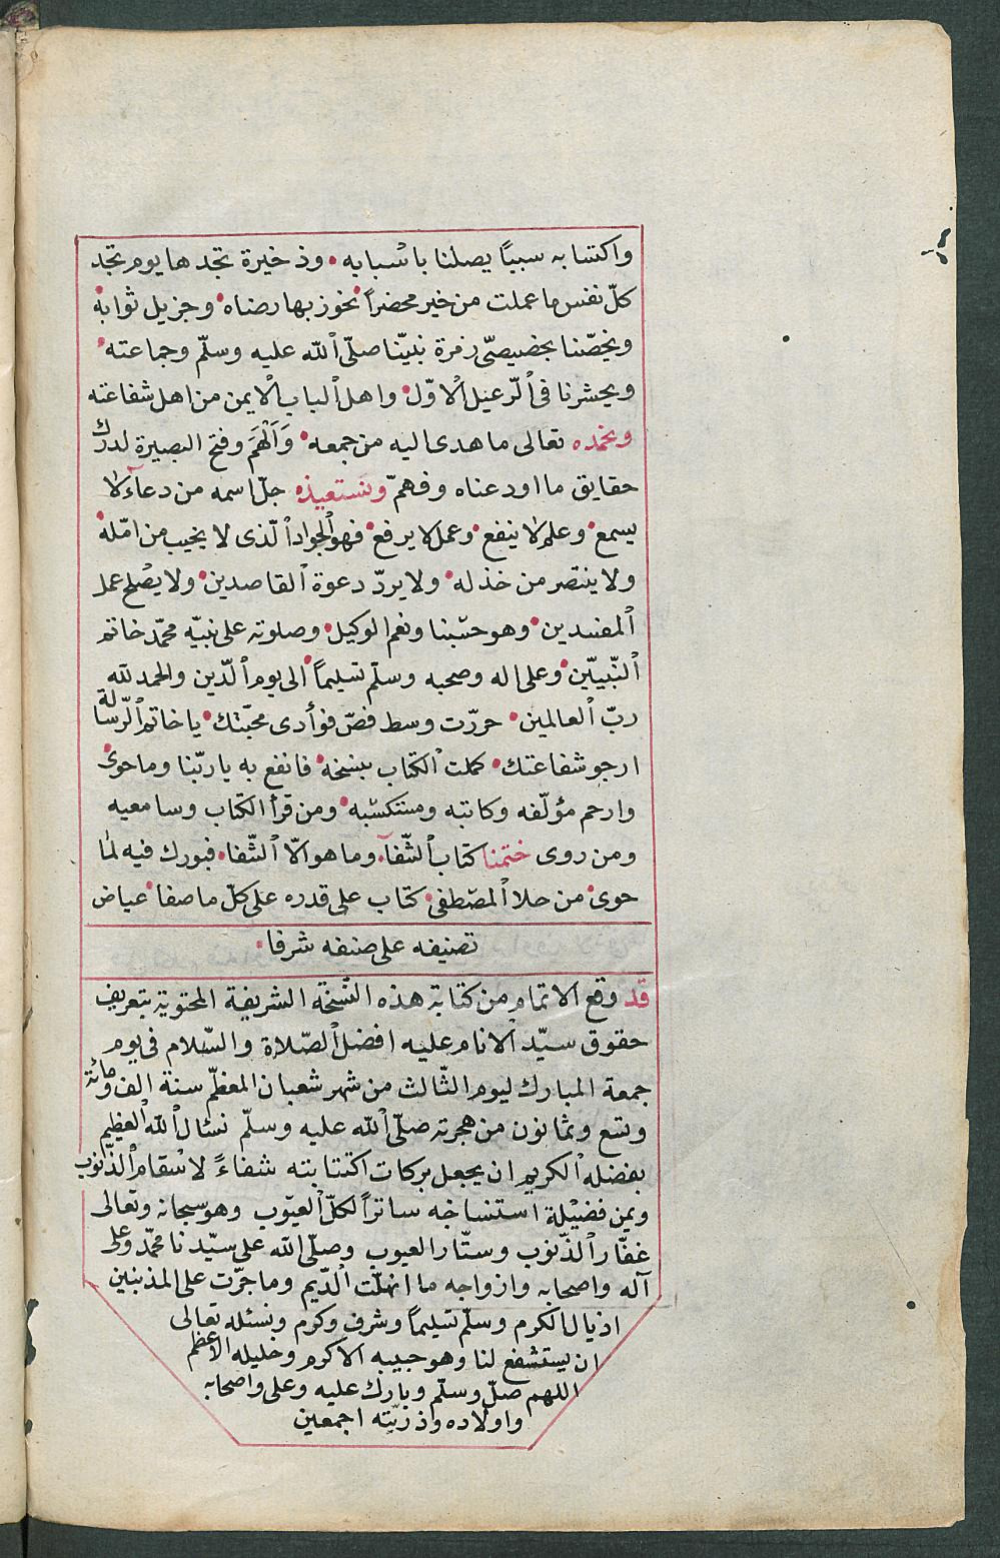 واكتسابه سببًا يصلنا باسْبابه • وذخيرة تجدها يوم تجد
كلّ نفس ما عملت من خير محضراً • نحوز بها رضاه • وجزيل ثوابه •
ويخصّنا بخصيصّى زمرة نبيّنا صلّى ٱلله عليه وسلّم وجماعته •
ويحشرنا فى ٱلرّعيل ٱلاوّل • واهل ٱلباب ٱلايمن من اهل شفاعته
ونحمده تعالى ما هدى اليه من جمعه • وَاَلْهَمَ وفتح البصيرة لدرك
حقايق ما اودعناه وفهمّ ونستعيذه جلّ اسمه من دعآء لا
يسمع • وعلم لا ينفع • وعمل لا يرفع • فهو ٱلجواد ٱلّذى لا يخيب من امّله •
ولا ينتصر من خذله • ولا يردّ دعوة ٱلقاصدين • ولا يصْلح عمل
ٱلمفسدين • وهو حسْبنا ونعم الوكيل • وصلوته على نبيّه محمّد خاتم
ٱلنّبيّين • وعلى اله وصحبه وسلّم تسليماً • الى يوم ٱلدّين والحمد لله
ربّ ٱلعالمين • حررّت وسط فصّ فوأدى محبّتك • يا خاتم ٱلرّسالة
ارجو شفاعتك • كملت ٱلكتاب بنسخه • فانفع به يا ربّنا وما حوى •
وارحم مؤلّفه وكاتبه ومستكسْبه • ومن قرأ الكتاب وسامعيه
ومن روى ختمنا كتاب ٱلشّفآ • وما هو الّا ٱلشّفا • فبورك فيه لما
حوى • من حلا ٱلمصّطفى • كتاب على قدره على كلّ ما صفا • عياض
تصنيفه على صنفه شرفا •
قد وقع الاتمام من كتابة هذه النّسْخة الشريفة المحتوية بتعريف
حقوق سيّد الانام عليه افضل ٱلصّلاة والسّلام فى يوم
جمعة المبارك ليوم الثّالث من شهر شعبان المعظّم سنة الف ومائة
وتسع وثمانون من هجرته صلّى ٱلله عليه وسلّم نسْئال ٱلله ٱلعظيم
بفضله ٱلكريم ان يجعل بركات اكتتابته شفاءً لاسْقام ٱلذّنوب
ويمن فضيْلة استنساخه ساتراً لكلّ ٱلعيّوب وهو سبحانه وتعالى
غفّار ٱلذّنوب وستّار العيوب وصلّى الله على سيّدنا محمّد وعلى
آله واصحابه وازواجه ما انهلّت ٱلدّيم وما جرّت على المذنبين
اذيال الكرم وسلّم تسليماً وشرف وكرم ونسئله تعالى
ان يستشفع لنا وهو حبيبه الاكرم وخليله الاعظم
اللهم صلّ وسلّم وبارك عليه وعلى واصحابه
واولاده واذرّيّته اجمعين